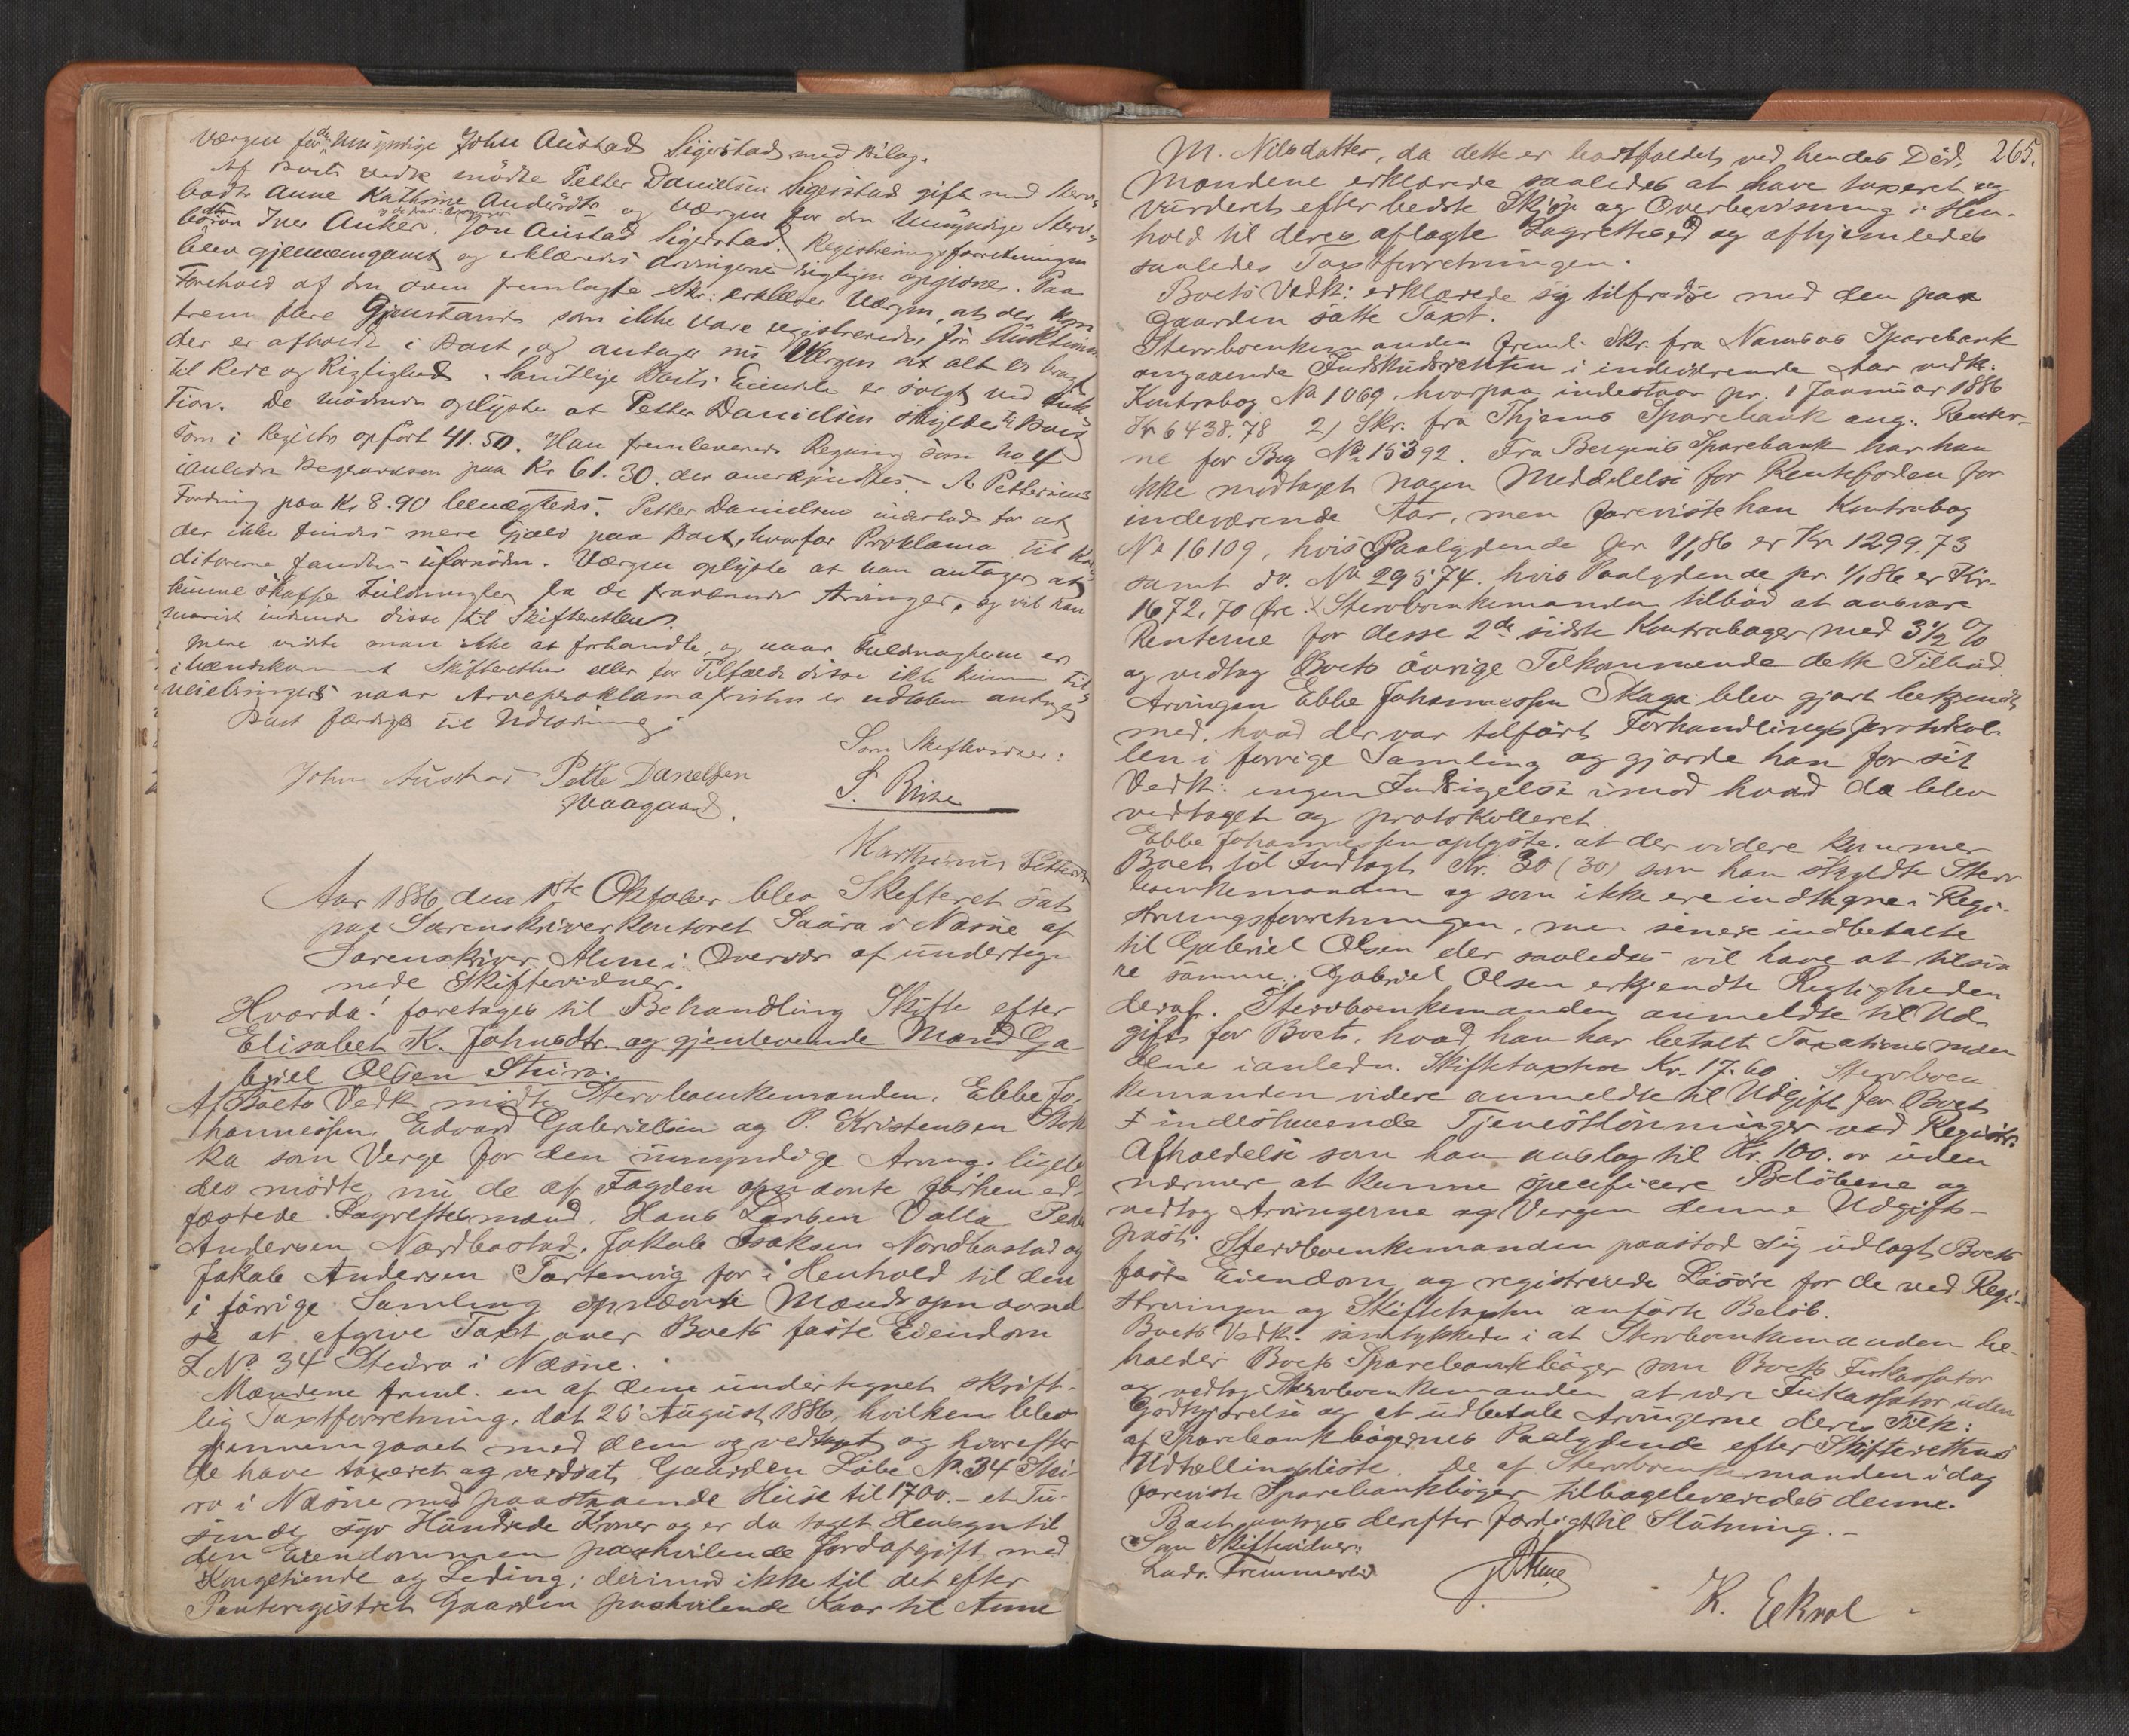 Værgen for den Umyndige John Aüstad Sigerstad med Bilag.
Af Boets Vedk mödte Petter Danielsen Sigerstad gift med Sterv-
bodtr Anne Kathrine Andersdtr og Værgen for den Umyndige Sterv-
bosön Iver Anker. Jon Aüstad Sigerstad. Registreringsforretningen
blev gjennemgaaet og erklæredes Arvingerne rigtigen opgivne. Paa
Forehold af den oven fremlagte Skr: erklærer Værgen, at der kom
frem flere Gjenstande som ikke vare registrerede, för Auktionen
der er afholdt i Boet, og antager nu Værgen at alt er bragt
til Rede og Rigtighed. Samtlige Boets Eiendele er solgt ved Auk-
tion. De mödende oplyste at Petter Danielsen skyldte Boet
som i Registr opfört 41.50. Han fremleverede Regning som No 4
ianledn Begravelsen paa Kr 61.30. der anerkjendtes. A Pettersens
Fordring paa Kr 8.90 benægtedes. Petter Danielsen indestod for at
der ikke findes mere Gjæld paa Boet, hvorfor Proklama til Kre-
ditorerne fandtes ufornöden. Værgen oplyste at han antager at
kunne skaffe Fuldmagter fra de fraværende Arvinger, og vil han
snarest indsende disse til Skifteretten.
Mere vidste man ikke at forhandle, og naar Fuldmagterne er
ihændekommet Skifteretten eller for Tilfælde disse ikke kunne til-
veiebringes naar Arveproklamafristen er udloben antages
Boet færdigt til Udlodning
Som Skiftevidner:
John Aüstad Pette Danelsen
Waagaard.
Marthinus Petters
Aar 1886 den 1ste Oktober blev Skifteret sat
paa Sorenskriverkontoret Saura i Næsne af
Sorenskriver Alme i Overvær af underteg-
nede Skiftevidner.
Hvorda! foretages til Behandling Skifte efter
Elisabet K. Johnsdtr. og gjenlevende Mand Ga-
briel Olsen Stüro.
Af Boets Vedk. mödte Stervboenkemanden, Ebbe Jo-
hannessen, Edvard Gabrielsen og P. Kristensen Stok
ka som Verge for den umyndige Arving. ligele-
des mödte nu de af Fogden opnævnte forhen ed-
fæstede Lagrettesmænd, Hans Larsen Valla, Peder
Andersen Nordbostad, Jakob Isaksen Nordbostad og
Jakob Andersen Tortenvig for i Henhold til den
i forrige Samling opnævnte Mændsopnævnel-
se at afgive Taxt over Boets faste Eiendom
L No. 34 Stüro i Næsne.
Mændene freml. en af dem undertegnet skrift-
lig Taxtforretning, dat 26 August 1886, hvilken blev
gjennemgaaet med dem og vedtaget og hvorefter
de have taxeret og værdsat Gaarden Löbe No. 34 Stü-
ro i Næsne med paastaaende Huse til 1700.- et Tu-
sinde syv Hundrede Kroner og er da taget Hensyn til
den Eiendommen paahvilende Jordafgift med
Kongetiende og Leding; derimod ikke til det efter
Panteregistret Gaarden paahvilende Kaar til Anne
265.
M. Nilsdatter, da dette er bortfaldet ved hendes Död,
Mændene erklærede saaledes at have taxeret og
vurderet efter bedste Skjön og Overbevisning i Hen-
hold til deres aflagte Lagrettesed og afhjemledes
saaledes Taxtforretningen.
Boets Vedk: erklærede sig tilfredse med den paa
Gaarden satte Taxt.
Stervboenkemanden freml. Skr. fra Namsos Sparebank
angaaende Indskudsrenten i indeværende Aar vedk.
Kontrabog No 1069, hvorpaa indestaar pr. 1 Januar 1886
Kr 6438.78 2) Skr. fra Thjems Sparebank ang. Renter-
ne for Bog No. 15392. Fra Bergens Sparebank har han
ikke modtaget nogen Meddelelse for Rentefoden for
indeværende Aar, men foreviste han Kontrabog
No 16109, hvis Paalydende pr 1/1 86 er Kr 1299.73
samt do. No 29574. hvis Paalydende pr. 1/1 86 er Kr.
1672,70 Öre. Stervboenkemanden tilböd at ansvare
Renterne for desse 2de sidste Kontraböger med 3½ %
og vedtog Boets övrige Vedkommende dette Tilbud
Arvingen Ebbe Johannessen Skaga blev gjort bekjendt
med, hvad der var tilfört Forhandlingsprotokol-
len i forrige Samling og gjorde han for sit
Vedk: ingen Indsigelse imod hvad da blev
vedtaget og protokolleret.
Ebbe Johannessen oplyste, at der videre kommer
Boet til Indtægt Kr. 30 (30) som han skyldte Sterv
boenkemanden og som ikke ere indtagne i Regi-
streringsforretningen, men senere indbetalte
til Gabriel Olsen der saaledes vil have at tilsva-
re samme. Gabriel Olsen erkjendte Rigtigheden
deraf. Stervboenkemanden anmeldte til Ud-
gift for Boet, hvad han har betalt Taxationsmæn
dene ianledn. Skiftetaxten Kr. 17.60. Stervboen
kemanden videre anmeldte til Udgift for Boet
indestaaende Tjenestlönninger ved Registr:
Afholdelse som han anslog til Kr. 100. uden
nærmere at kunne specificere Belöbene og
vedtog Arvingerne og Vergen denne Udgifts-
post. Stervboenkemanden paastod sig udlagt Boets
faste Eiendom og registrerede Lösöre for de ved Regi-
streringen og Skiftetaxten anförte Belöb.
Boets Vedk. samtykkede i at Stervboenkemanden be-
holder Boets Sparebankböger som Boets Inkassator
og vedtog Stervboenkemanden at være Inkassator uden
Godtgjörelse og at udbetale Arvingerne deres Tilk:
af Sparebankbögernes Paalydende efter Skifterettens
Udtællingsliste. De af Stervboenkemanden i dag
foreviste Sparebankböger tilbageleveredes denne.
Boet antoges derefter færdigt til Slutning.-
Som Skiftevidner:
K. Ekrol